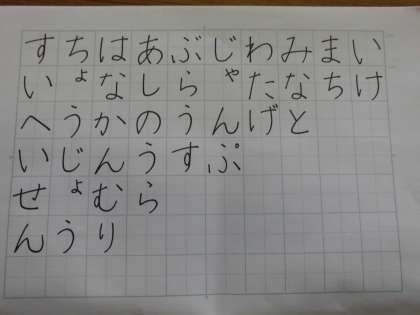 いけ
まち
みなと
わたげ
じゃんぷ
ぶらうす
あしのうら
はなかんむり
ちょうじょう
すいへいせん